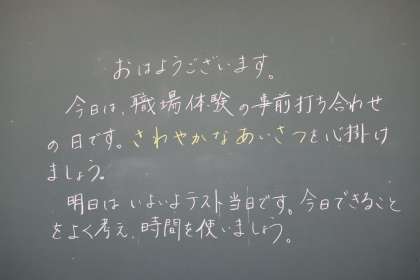 おはようございます。
今日は、職場体験の事前打ち合わせ
の日です。さわやかなあいさつを心掛け
ましょう。
明日はいよいよテスト当日です。今日できること
をよく考え、時間を使いましょう。